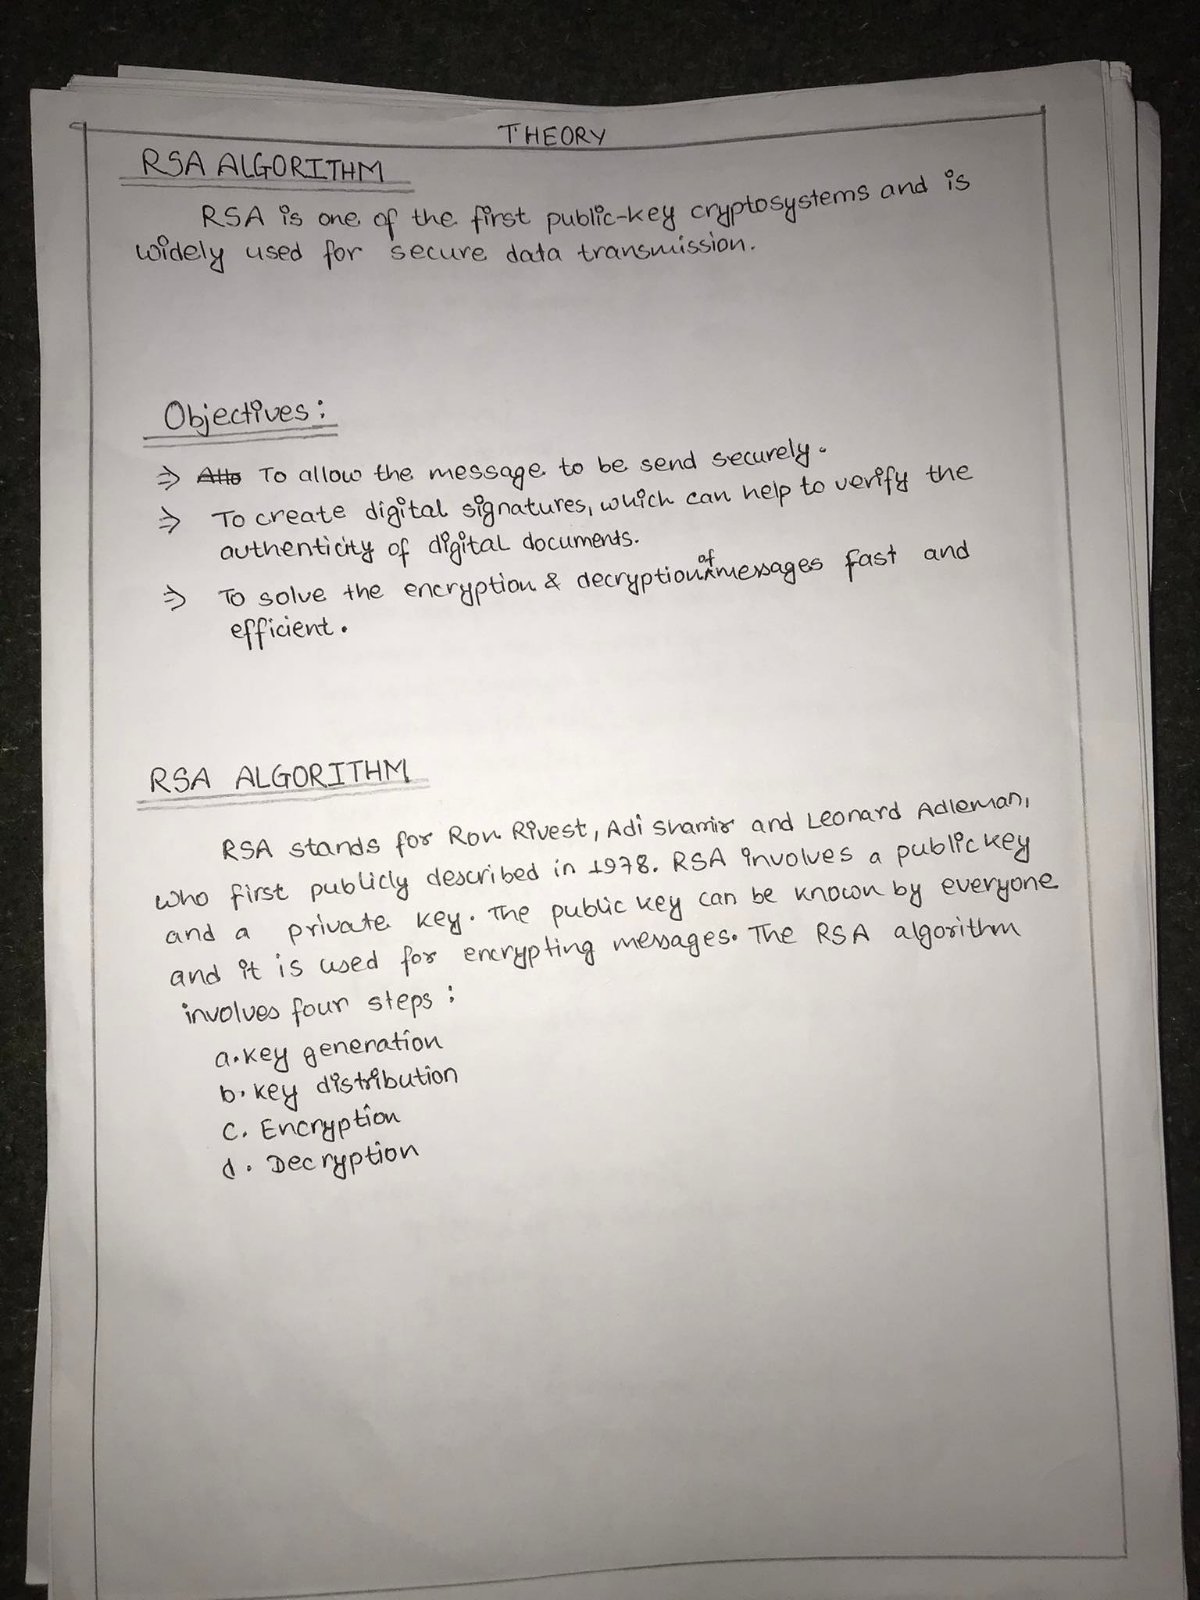 THEORY
RSA ALGORITHM
RSA is one of the first public-key cryptosystems and is
widely used for secure data transmission.
Objectives:
⇒ To allow the message to be send securely.
⇒ To create digital signatures, which can help to verify the
authenticity of digital documents.
⇒ To solve the encryption & decryption of messages fast and
efficient.
RSA ALGORITHM
RSA stands for Ron Rivest, Adi Shamir and Leonard Adleman,
who first publicly described in 1978. RSA involves a public key
and a private key. The public key can be known by everyone
and it is used for encrypting messages. The RSA algorithm
involves four steps:
a. key generation
b. key distribution
c. Encryption
d. Decryption